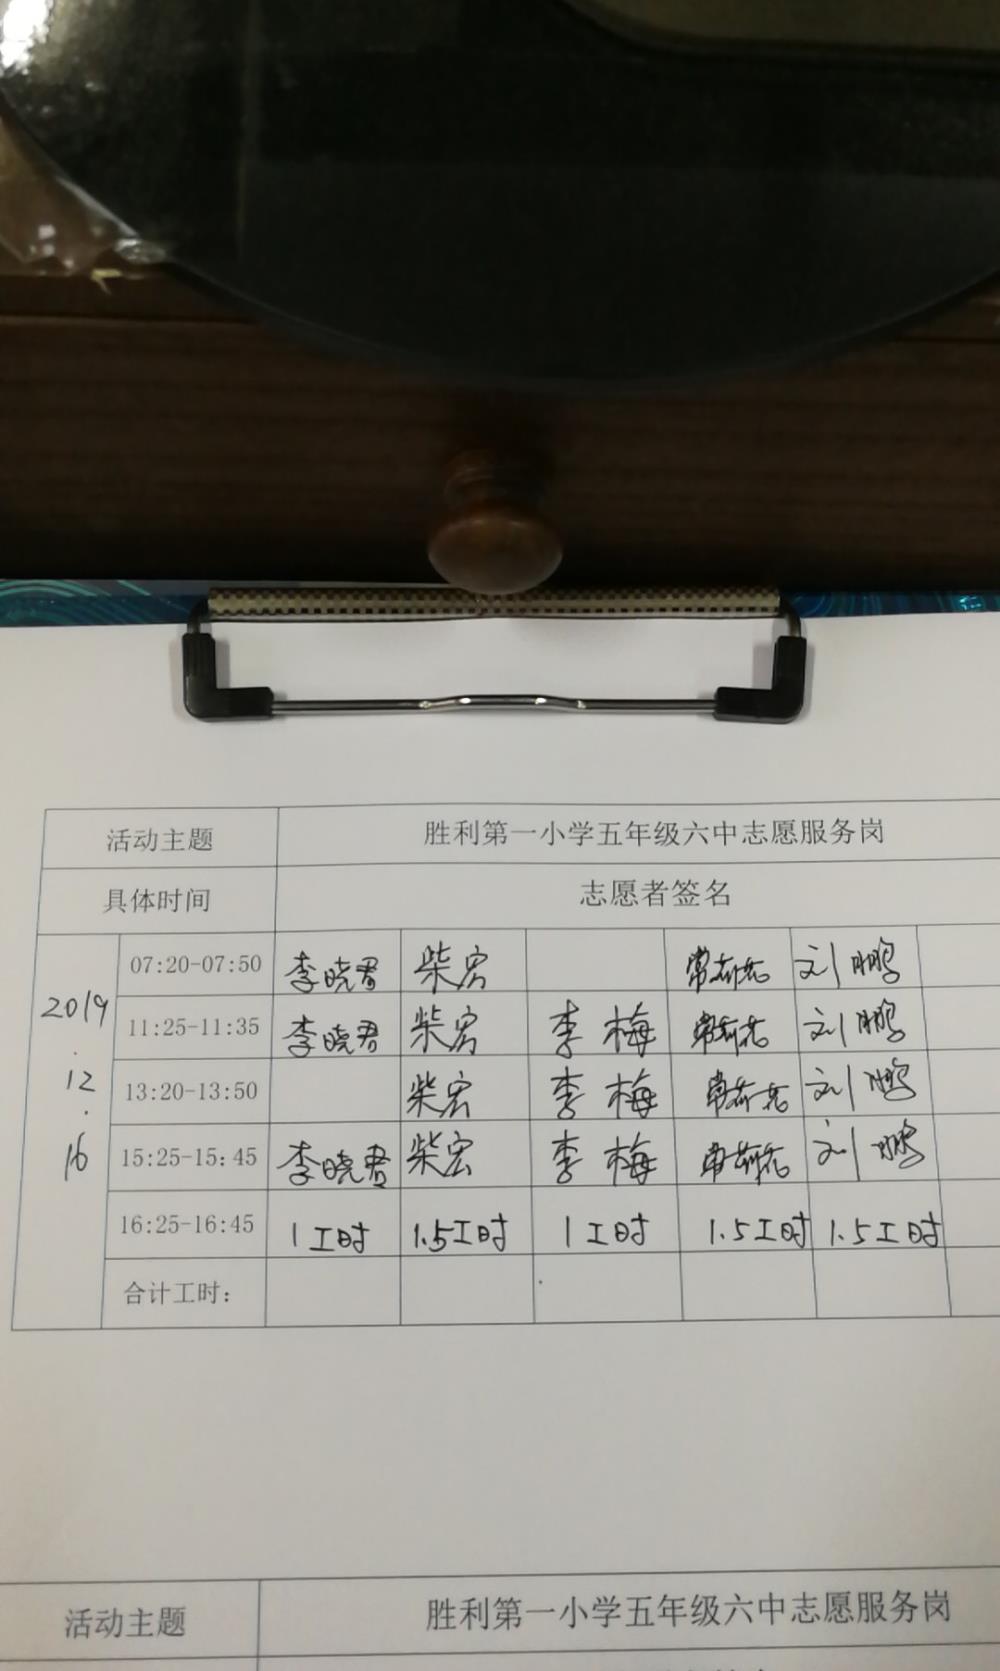 活动主题 胜利第一小学五年级六中志愿服务岗
具体时间 志愿者签名
2019.12.16
07:20-07:50 李晓君 柴宏 刘鹏
11:25-11:35 李晓君 柴宏 李梅 刘鹏
13:20-13:50 柴宏 李梅 刘鹏
15:25-15:45 李晓君 柴宏 李梅 刘鹏
16:25-16:45 1工时 1.5工时 1工时 1.5工时 1.5工时
合计工时:
活动主题 胜利第一小学五年级六中志愿服务岗